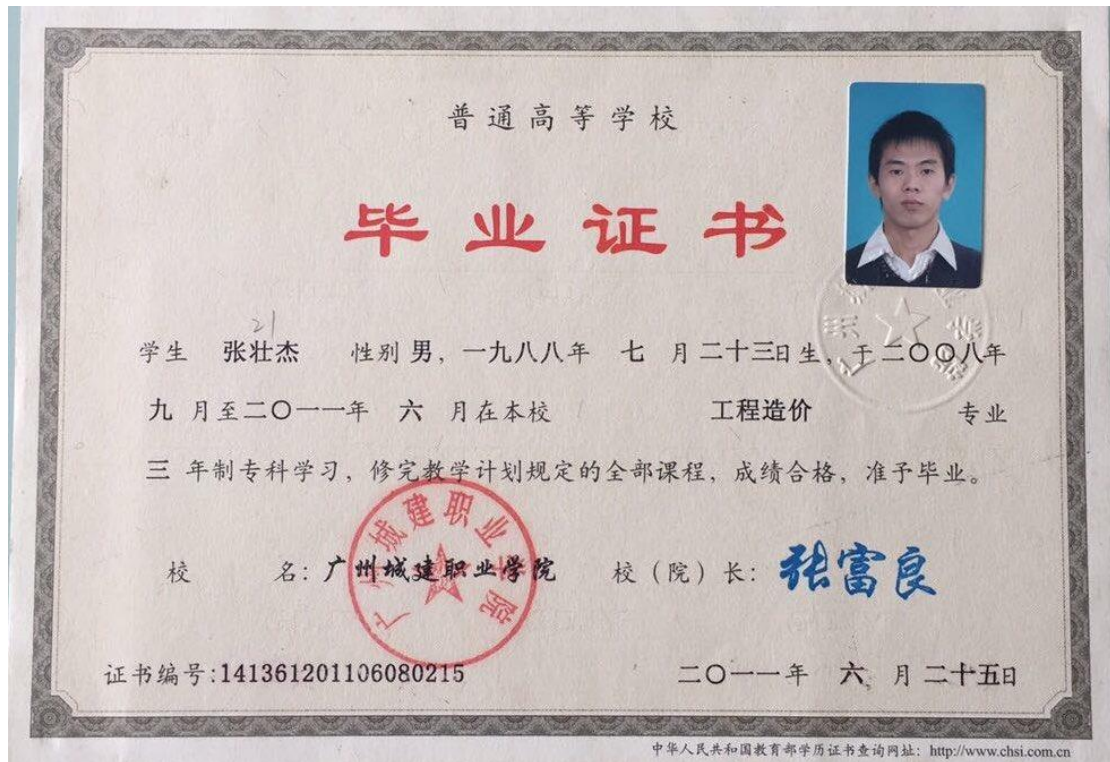 普通高等学校
毕业证书
21
学生 张壮杰 性别 男，一九八八年 七 月二十三日生，于二〇〇八年
九 月至二〇一一年 六 月在本校 工程造价 专业
三 年制专科学习，修完教学计划规定的全部课程，成绩合格，准予毕业。
广州城建职业学院
校 名：广州城建职业学院 校（院）长：张富良
证书编号:141361201106080215 二〇一一年 六 月 二十五日
中华人民共和国教育部学历证书查询网址：http://www.chsi.com.cn